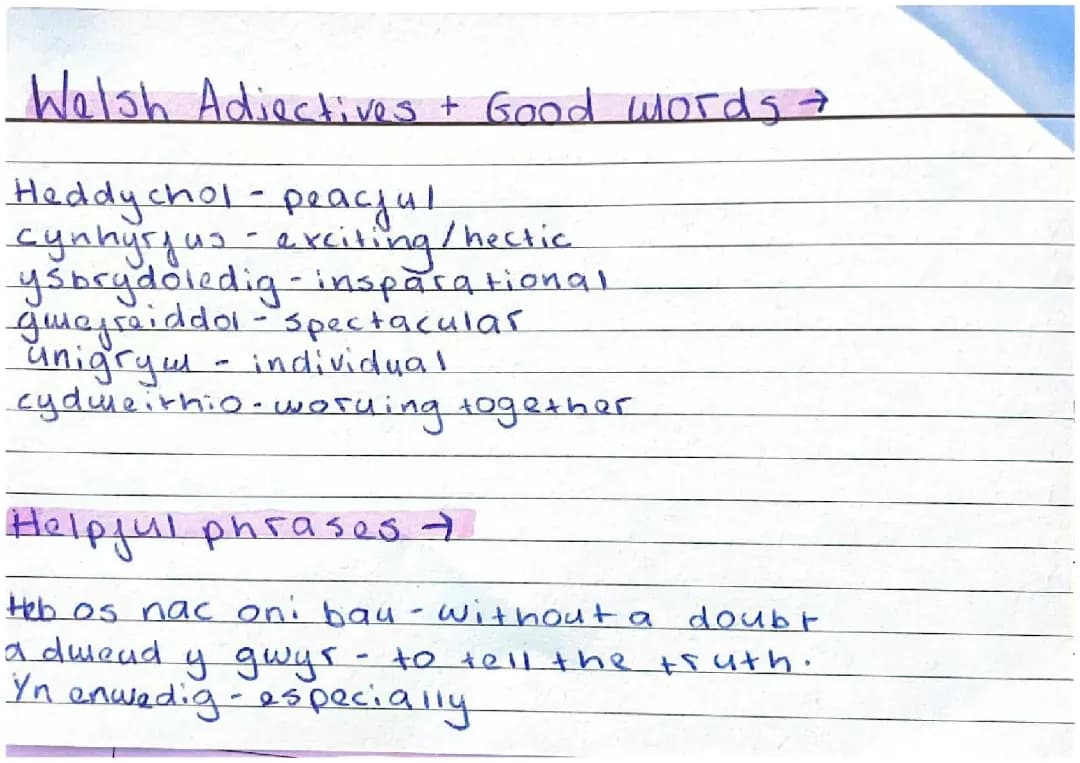 Welsh Adjectives + Good words →
Heddychol - peacful
cynhyrfus - exciting/hectic
ysbrydoledig - insparational
gwefreiddol - spectacular
unigryw - individual
cydweirhio - working together
Helpful phrases →
Heb os nac oni bau - without a doubt
a dweud y gwyr - to tell the truth.
Yn enwedig - especially